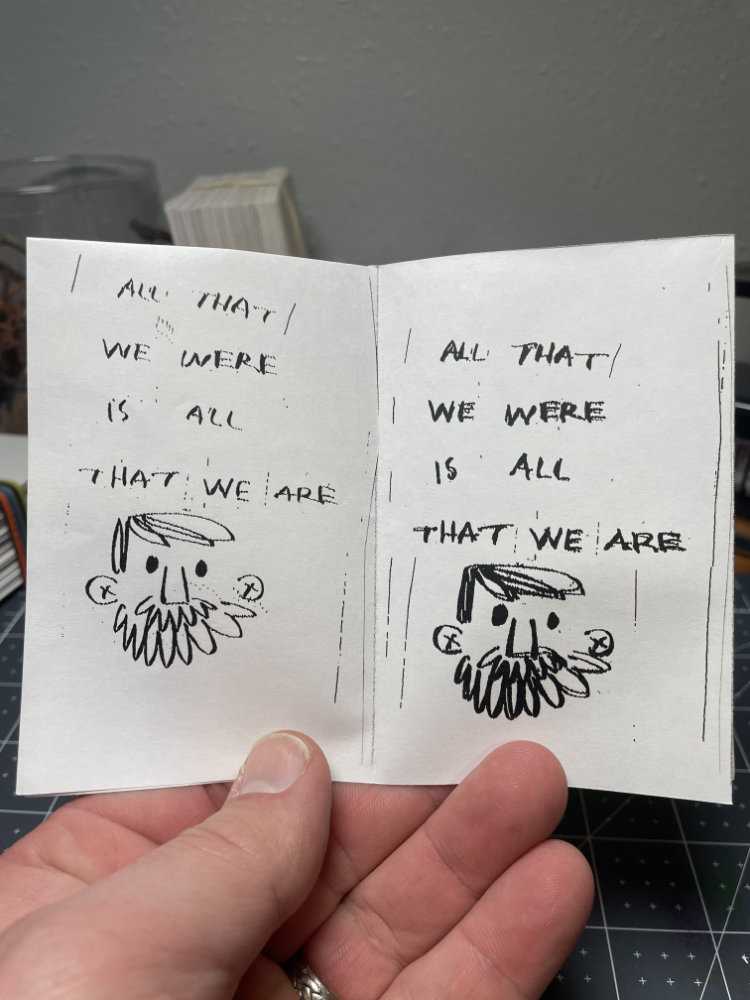 ALL THAT
WE WERE
IS ALL
THAT WE ARE
ALL THAT
WE WERE
IS ALL
THAT WE ARE